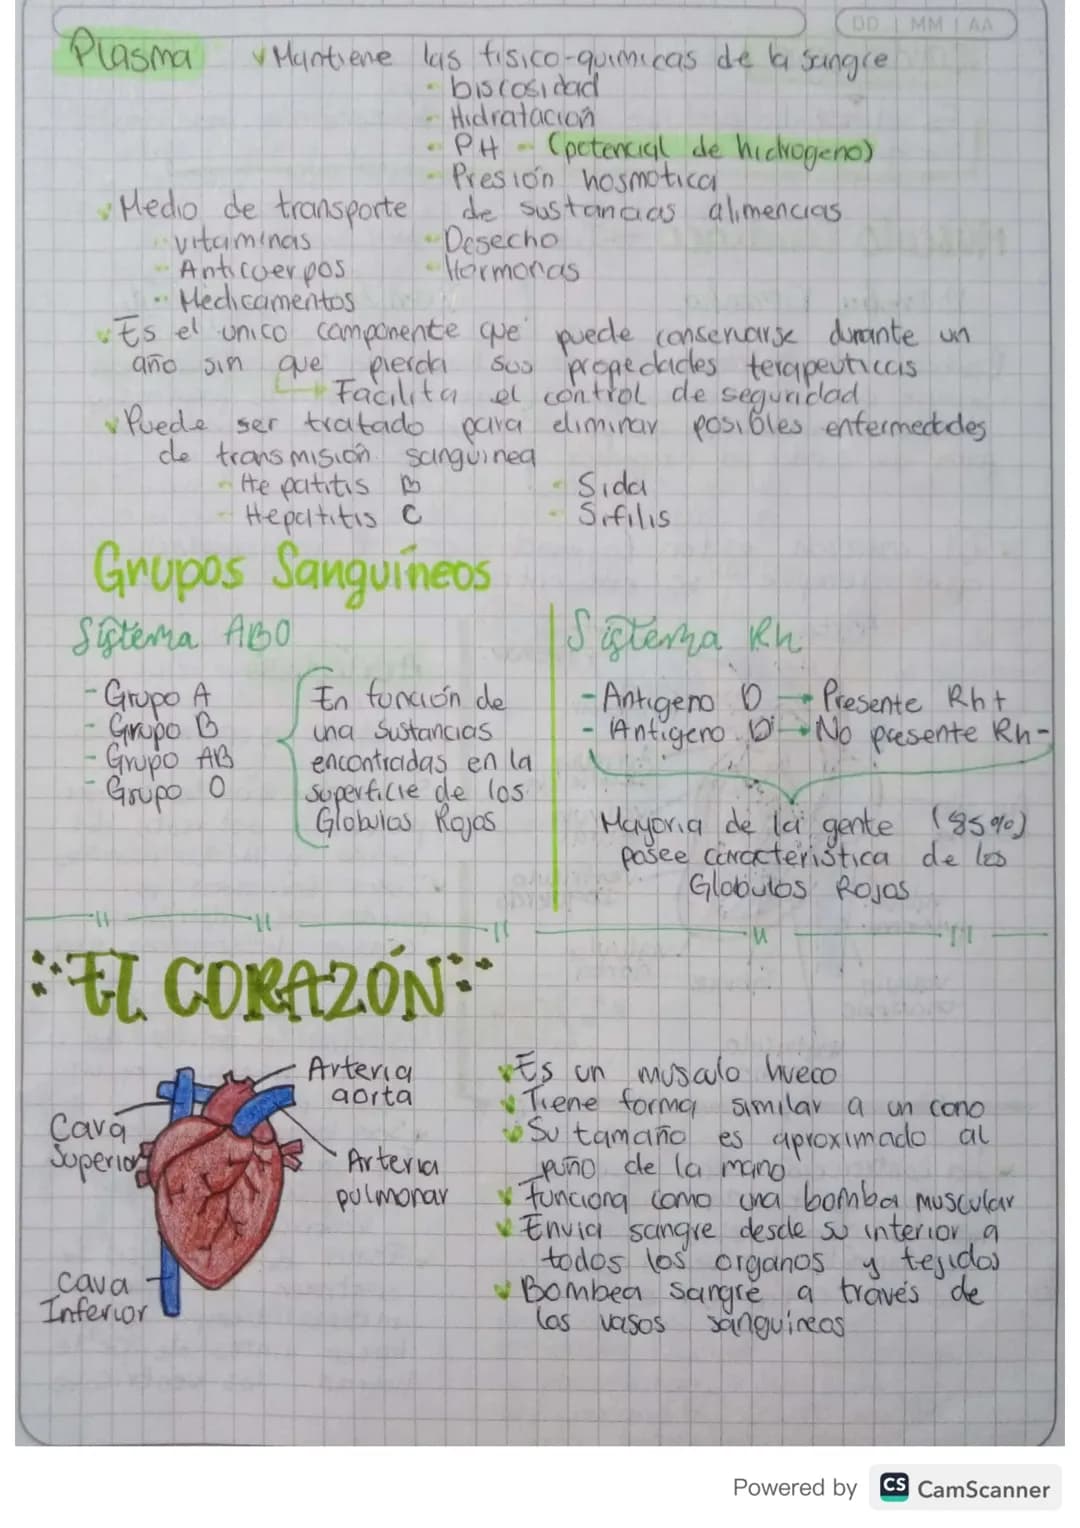 DD | MM | AA
Plasma
✓ Mantiene las fisico-quimicas de la sangre
- biscosidad
- Hidratación
- PH - (potencial de hidrogeno)
- Presión hosmotica
✓ Medio de transporte de sustancias alimencias
- vitaminas - Desecho
- Anticuerpos - Hormonas
- Medicamentos
✓ Es el unico componente que puede conservarse durante un
año sin que pierda sus propiedades terapeuticas
→ Facilita el control de seguridad
✓ Puede ser tratado para eliminar posibles enfermedades
de transmisión sanguinea
- Hepatitis B - Sida
- Hepatitis C - Sifilis
Grupos Sanguíneos
Sistema ABO
- Grupo A
- Grupo B
- Grupo AB
- Grupo O
En función de
una sustancias
encontradas en la
superficie de los
Globulos Rojos
Sistema Rh
- Antigeno D → Presente Rh+
- Antigeno D → No presente Rh-
Mayoria de la gente (85%)
posee caracteristica de los
Globulos Rojos
EL CORAZÓN
Arteria
aorta
Cava
Superior
Arteria
pulmonar
Cava
Inferior
✓ Es un musculo hueco
✓ Tiene forma similar a un cono
✓ Su tamaño es aproximado al
puño de la mano
✓ Funciona como una bomba muscular
✓ Envia sangre desde su interior a
todos los organos y tejidos
✓ Bombea sangre a través de
los vasos sanguineos
Powered by CS CamScanner